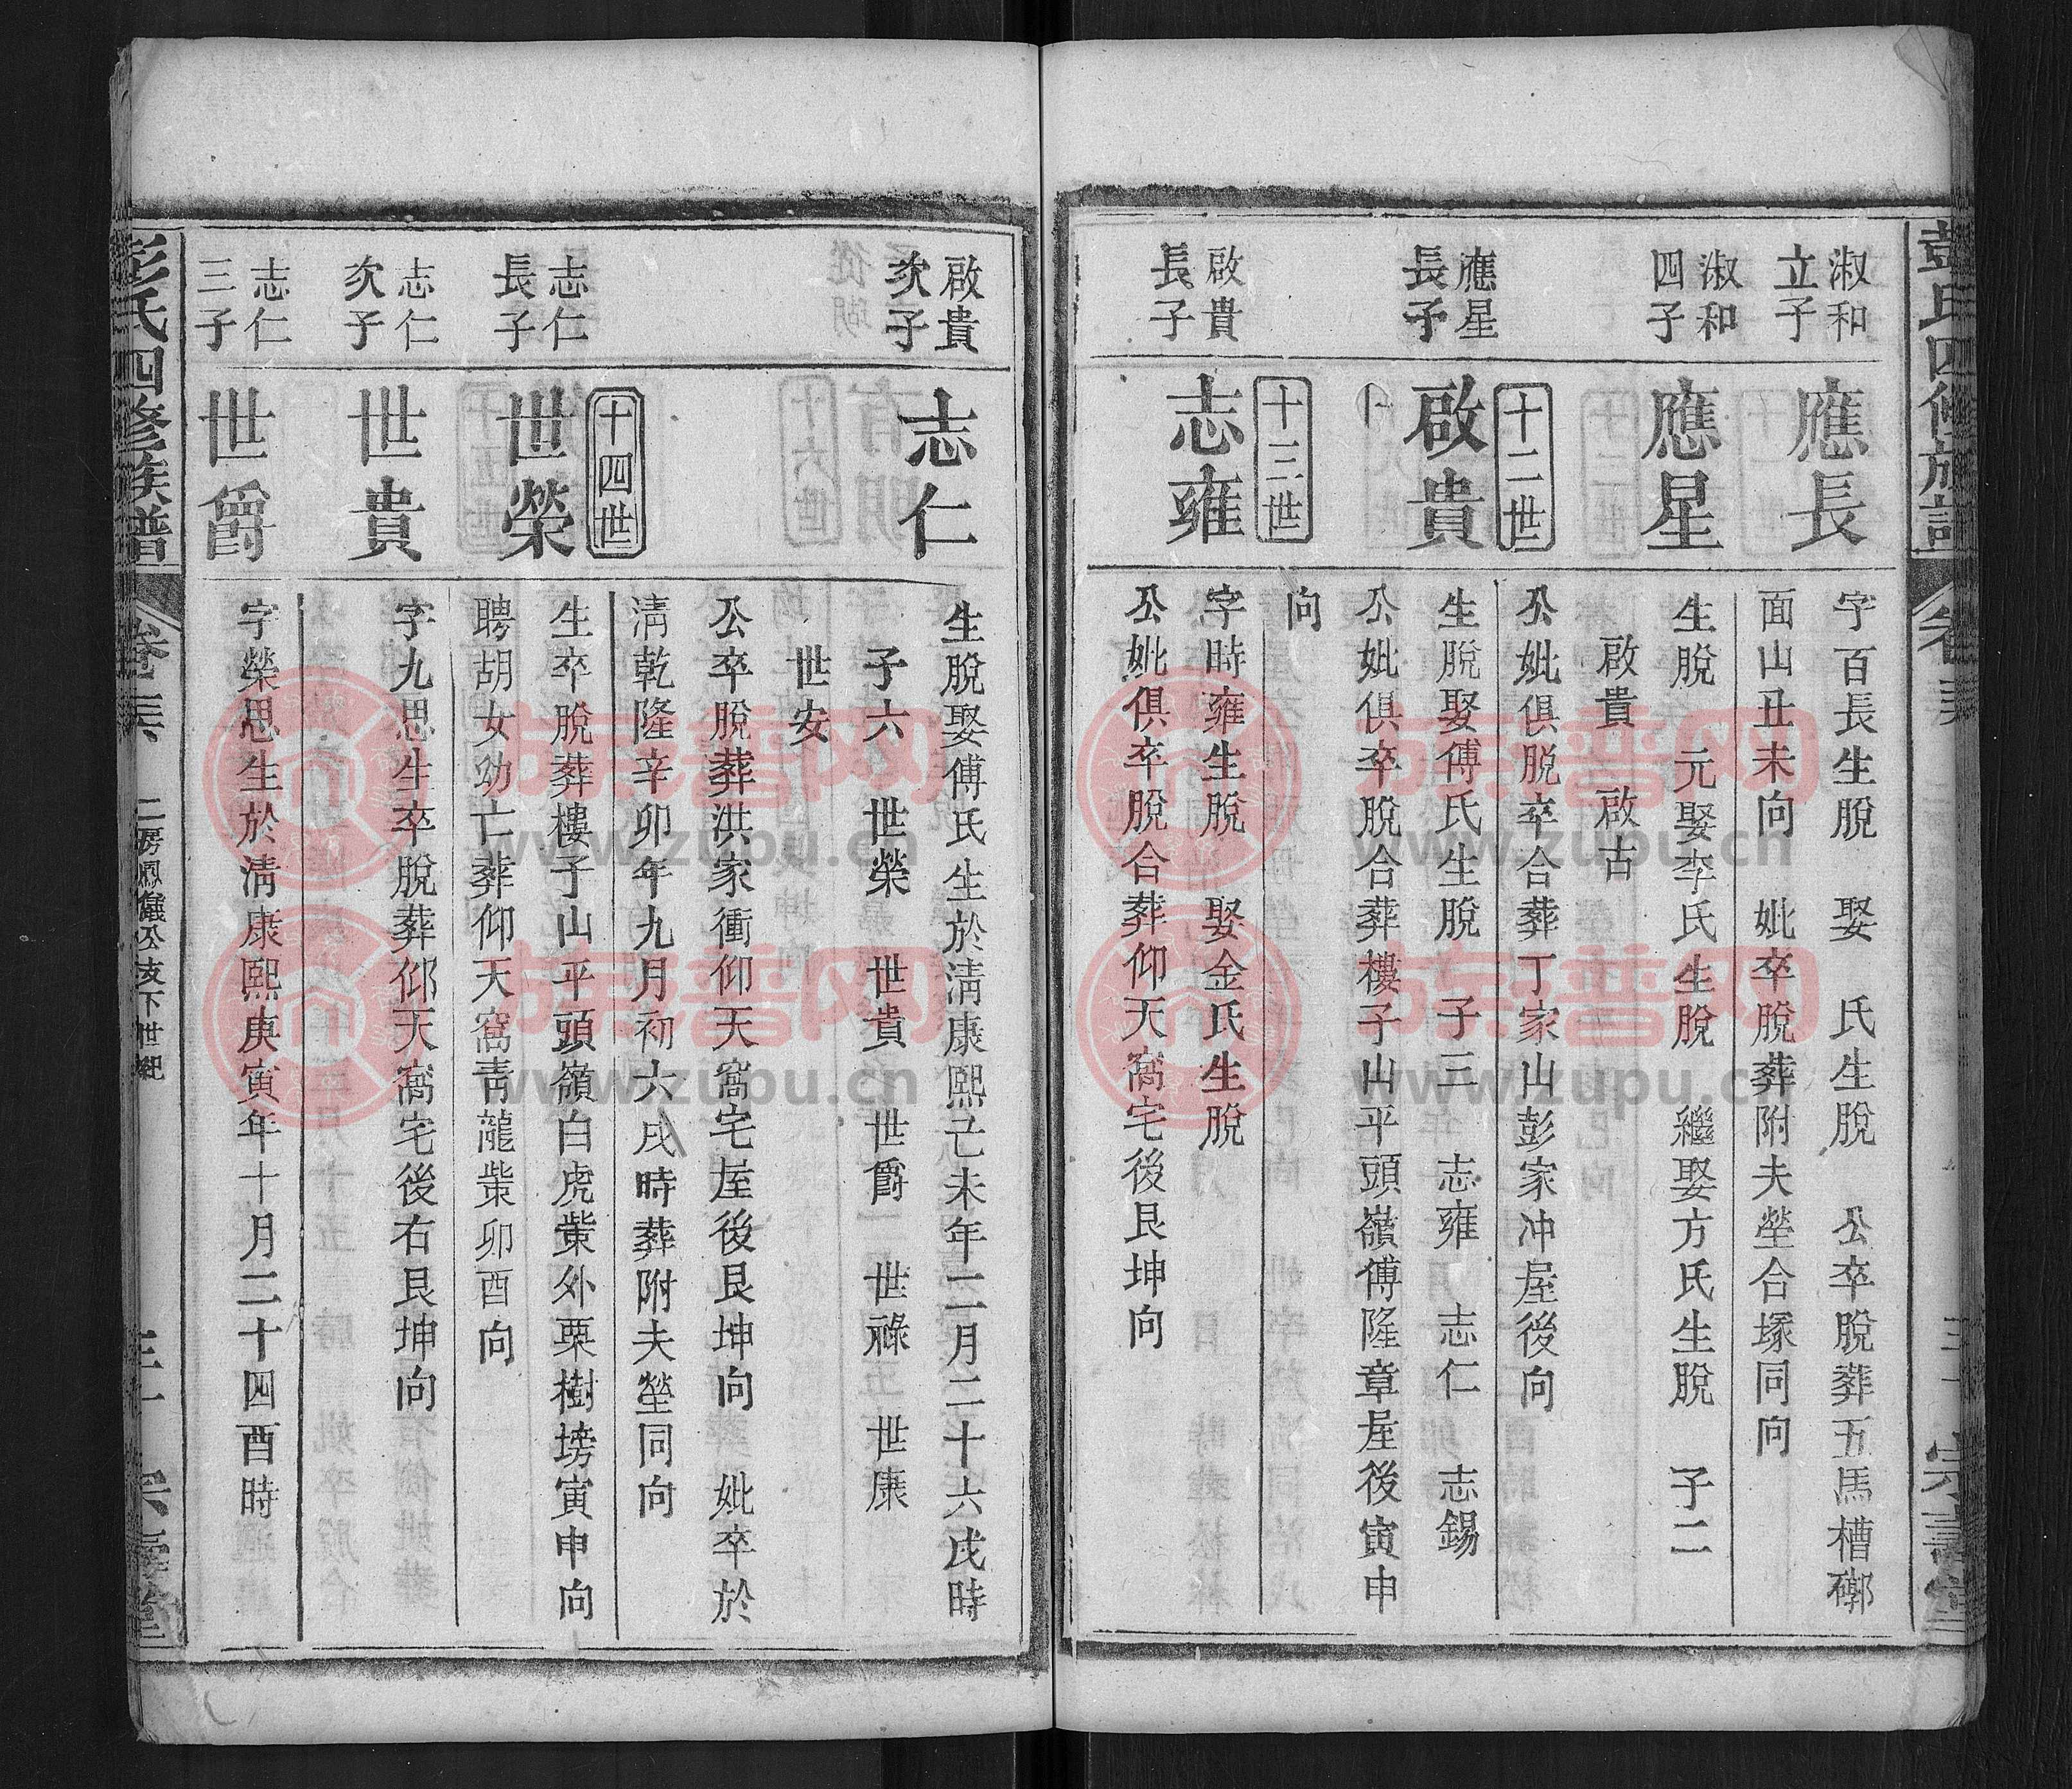 彭氏四修族譜
淑和
立子
應長
字百長生脫　娶　氏生脫　公卒脫葬五馬槽磔
面山丑未向　妣卒脫葬附夫塋合塚同向
淑和
四子
應星
生脫　元娶李氏生脫　繼娶方氏生脫　子二
啟貴　啟古
公妣俱脫卒合葬丁家山彭家冲屋後向
十二世
應星
長子
啟貴
生脫娶傅氏生脫　子三　志雍　志仁　志錫
公妣俱卒脫合葬樓子山平頭嶺傅隆章屋後寅申
向
十三世
啟貴
長子
志雍
字時雍生脫　娶金氏生脫
公妣俱卒脫合葬仰天窩宅後艮坤向
啟貴
次子
志仁
生脫娶傅氏生於清康熙己未年二月二十六戌時
子六　世榮　世貴　世爵　世祿　世康
世安
公卒脫葬洪家衝仰天窩宅屋後艮坤向　妣卒於
清乾隆辛卯年九月初六戌時葬附夫塋同向
十四世
志仁
長子
世榮
生卒脫葬樓子山平頭嶺白虎嘴外栗樹塝寅申向
聘胡女幼亡葬仰天窩青龍嘴卯酉向
志仁
次子
世貴
字九思生卒脫葬仰天窩宅後右艮坤向
志仁
三子
世爵
字榮思生於清康熙庚寅年十月二十四酉時
彭氏四修族譜
二房鳳儀公支下世紀
族谱网
www.zupu.cn
族谱网
www.zupu.cn
族谱网
www.zupu.cn
族谱网
www.zupu.cn